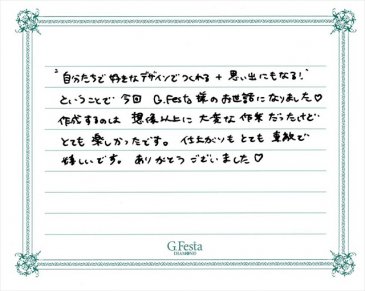 "自分たちで好きなデザインでつくれる + 思い出にもなる!"
ということで 今回 G.Festa 様のお世話になりました♡
作成するのは 想像以上に 大変な 作業 だったけど
とても 楽しかったです。 仕上がりも とても 素敵で
嬉しいです。 ありがとう ございました♡
G.Festa
DIAMOND